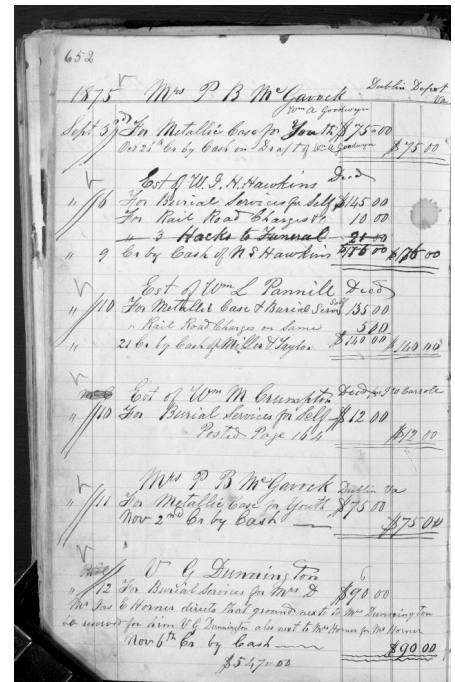 652
1875 Mrs P B McGavock Dublin Depot Va
Wm A Goodwyn
Sept 3rd For Metallic Case for Youth $75.00
Oct 25th Cr by Cash on Draft of Wm A Goodwyn $75.00
Est of W. J. H. Hawkins Decd
" 6 For Burial Services for Self $145 00
For Rail Road Charges 10 00
" 3 Hacks to Funeral 21 00
" 9 Cr by Cash of N S Hawkins $176 00 $176 00
Est of Wm L Pannill Decd
" 10 For Metallic Case & Burial Serv Self 135 00
" Rail Road Charges on Same 5 00
" 21 Cr by Cash of Miller & Taylor $140 00 $140 00
Est of Wm M Crumpton Decd
" 10 For Burial Services for Self $12 00
Posted Page 164 $12 00
Mrs P B McGavock Dublin Va
" 11 For Metallic Case for Youth $75 00
Nov 2nd Cr by Cash $75 00
V G Dunnington
" 12 For Burial Services for Mrs D $90 00
Mr Jas C Horner directs that ground next to Mrs Dunnington
be reserved for him V G Dunnington also next to Mrs Horner for Mr Horner
Nov 6th Cr by Cash $90 00
$547.00